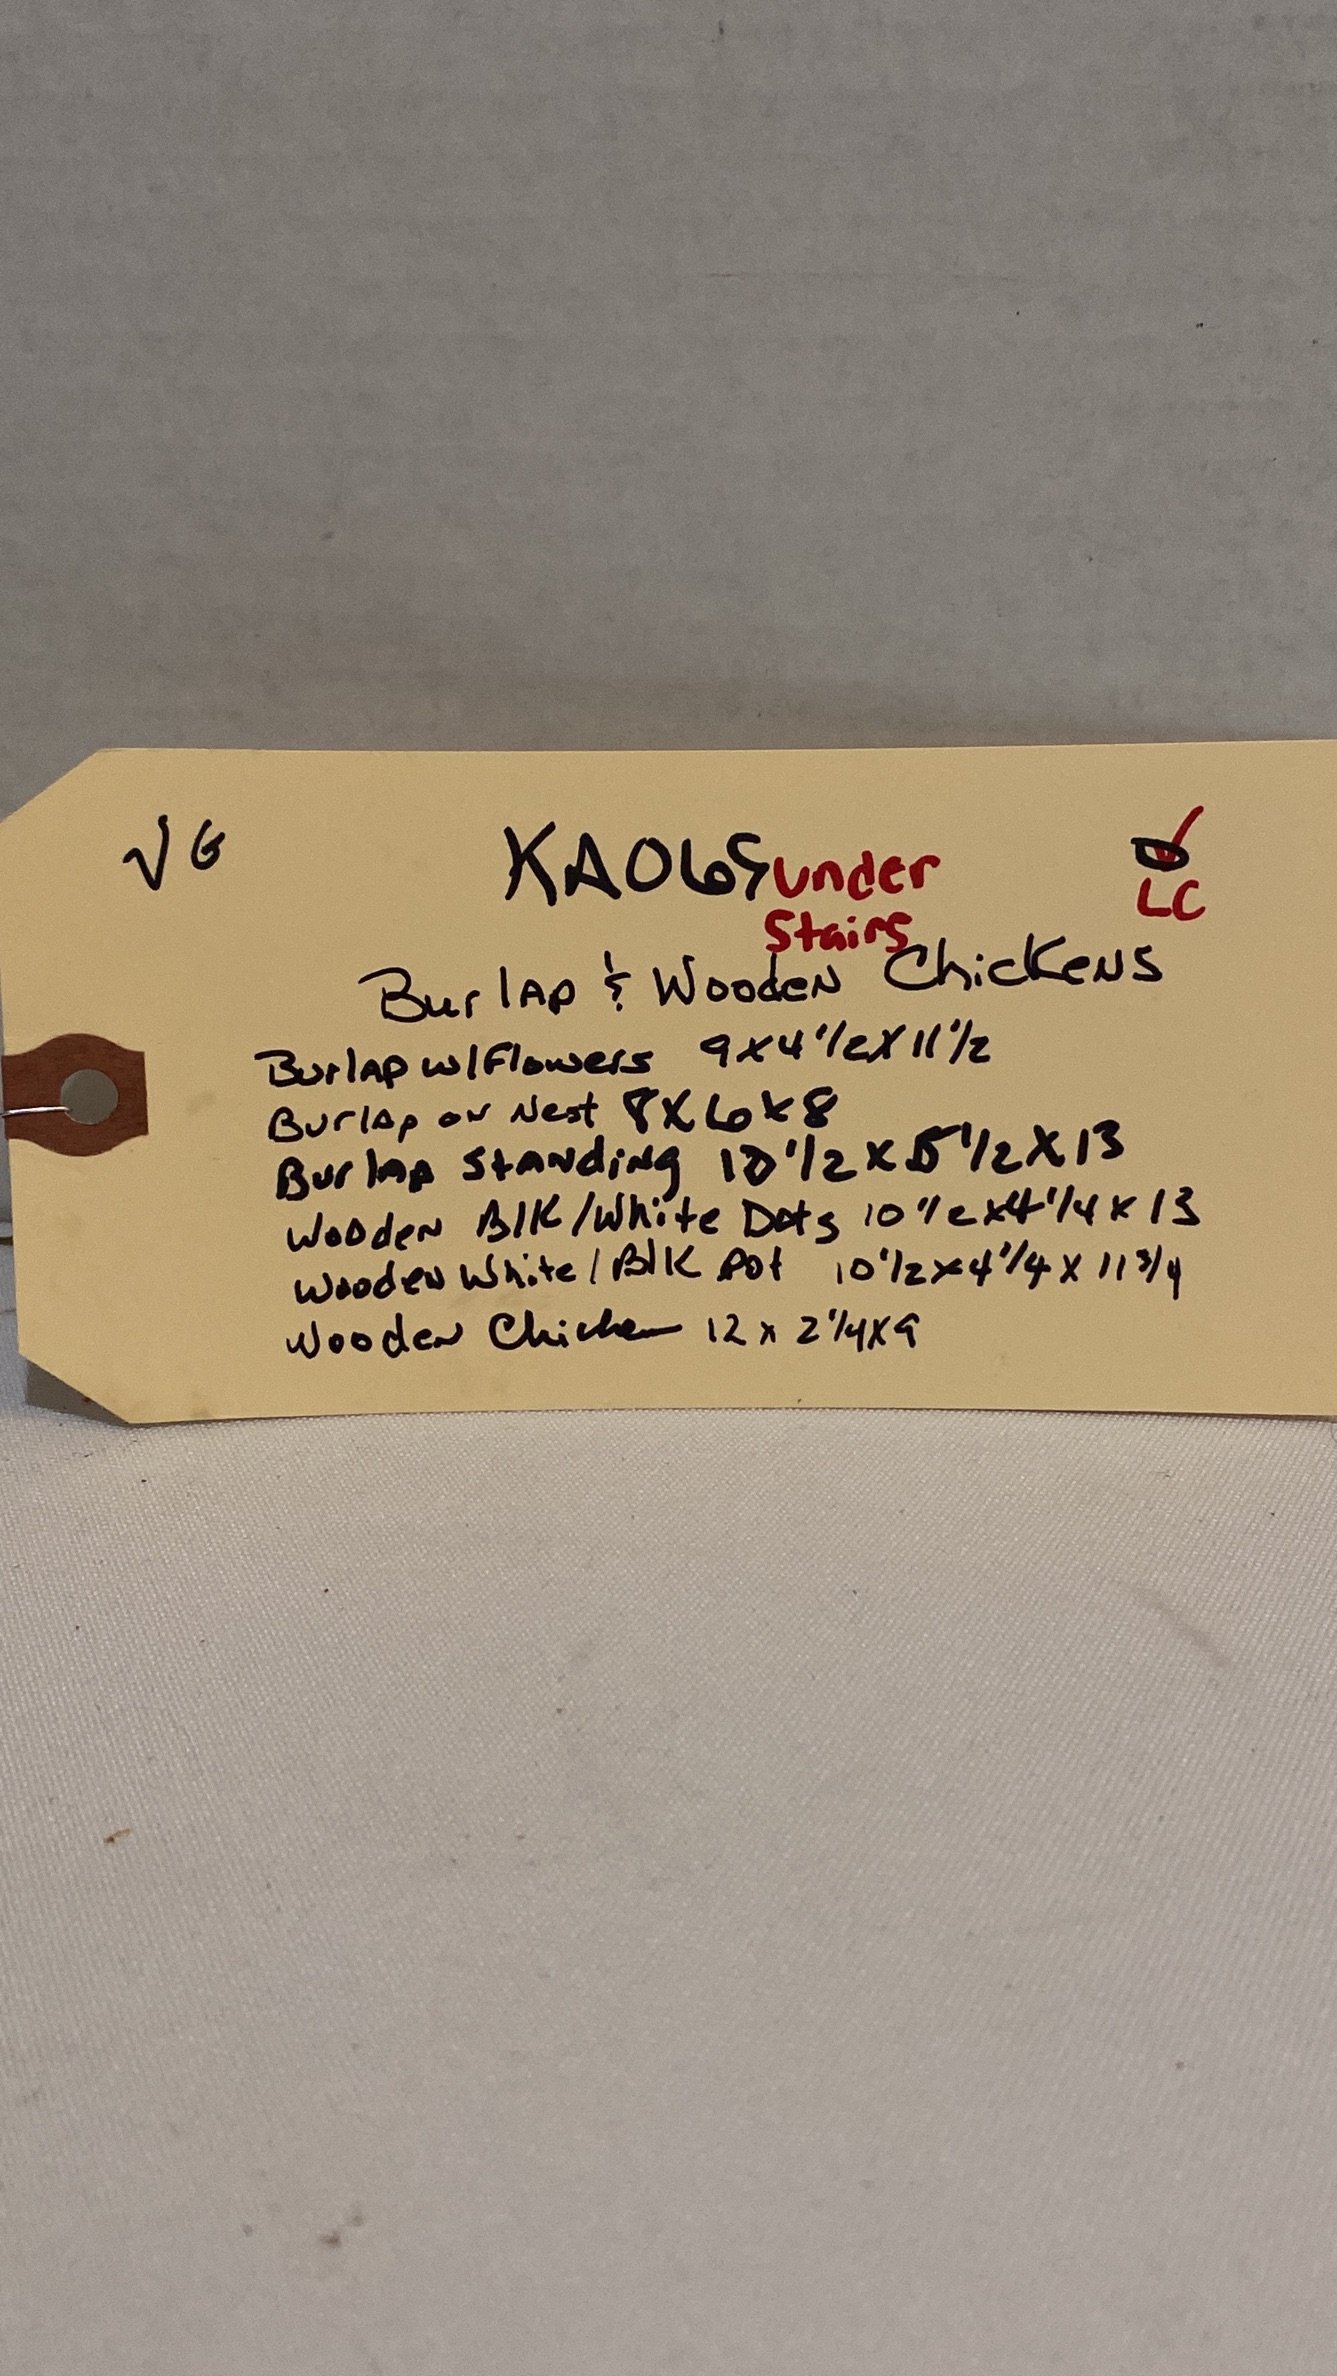 VG KA065 under LC
Stairs
Burlap & Wooden Chickens
Burlap w/Flowers 9x4 1/2x11 1/2
Burlap on Nest 8x6x8
Burlap Standing 10 1/2 x 5 1/2 x 13
Wooden Blk/White Dots 10 1/2 x4 1/4 x 13
Wooden White/Blk Dot 10 1/2 x 4 1/4 x 11 3/4
Wooden Chicken 12 x 2 1/4 x 9